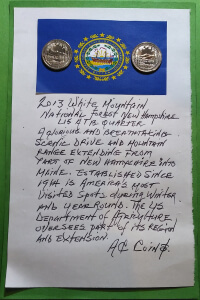 2013 White Mountain
National Forest New Hampshire
US ATB Quarter
A glorious and breathtaking
scenic drive and mountain
range extending from
part of New Hampshire into
Maine. Established since
1914 is America's most
visited spots during winter
and year round. The US
Department of Agriculture
oversees part of its region
and extension.
A¢ Coin¢